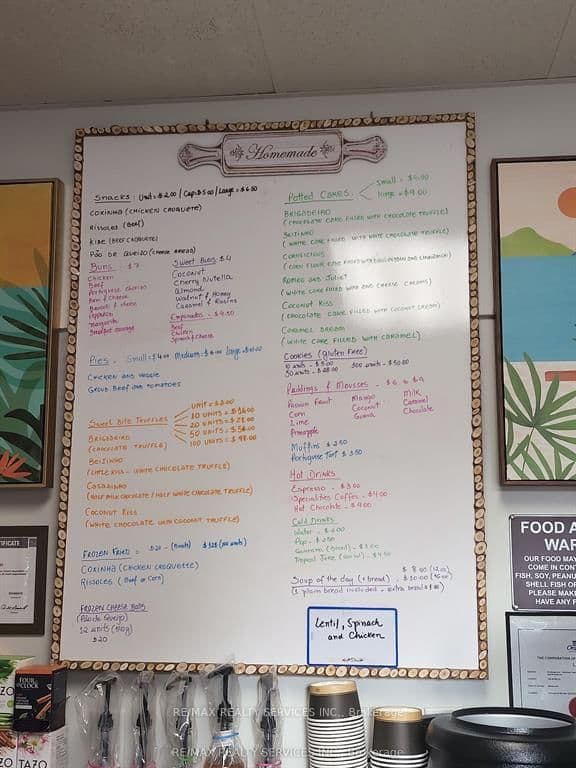 Homemade
Snacks: Unit = $2.00 / Cup = $5.00 / Large = $6.50
COXINHA (CHICKEN CROQUETTE)
RISSOLES (Beef)
KIBE (BEEF CROQUETTE)
PÃO DE QUEIJO (CHEESE BREAD)
Buns $7
Chicken
Beef
Portuguese chorizo
Ham & cheese
Margarita
Breakfast sausage
Sweet Buns $4
Coconut
Cherry Nutella
Almond
Walnut & Honey
Caramel & Raisins
Empanadas - $4.50
Beef
Chicken
Spinach & Cheese
Pies - Small = $4.00 Medium - $6.00 Large $10.00
CHICKEN AND VEGGIE
GROUND BEEF AND TOMATOES
Sweet Bite Truffles
UNIT = $2.00
10 UNITS = $16.00
20 UNITS = $28.00
50 UNITS = $56.00
100 UNITS = $98.00
BRIGADEIRO
(CHOCOLATE TRUFFLE)
BEIJINHO
(LITTLE KISS - WHITE CHOCOLATE TRUFFLE)
CASADINHO
(HALF MILK CHOCOLATE / HALF WHITE CHOCOLATE TRUFFLE)
COCONUT KISS
(WHITE CHOCOLATE WITH COCONUT TRUFFLE)
FROZEN FRIED =
COXINHA (CHICKEN CROQUETTE)
RISSOLES (Beef or Corn)
FROZEN CHEESE BUNS
(Pão de Queijo)
12 units
$20
Potted Cakes
small = $6.00
large = $9.00
BRIGADEIRO
(CHOCOLATE CAKE FILLED WITH CHOCOLATE TRUFFLE)
BEIJINHO
(WHITE CAKE FILLED WITH WHITE CHOCOLATE TRUFFLE)
ROMEO AND JULIET
(WHITE CAKE FILLED WITH AND CHEESE CREAMS)
COCONUT KISS
(CHOCOLATE CAKE FILLED WITH COCONUT CREAM)
CARAMEL DREAM
(WHITE CAKE FILLED WITH CARAMEL)
COOKIES (Gluten Free)
10 units - $5.00 100 units - $50.00
50 units - $28.00
Puddings & Mousses - $6 & $9
Passion Fruit
Corn
Lime
Pineapple
Mango
Coconut
Guava
Milk
Caramel
Chocolate
Muffins $2.50
Portuguese Tart $3.50
Hot Drinks
Espresso - $3.00
Specialities Coffee - $4.00
Hot Chocolate - $4.00
Cold Drinks
Water -
Pop - $2.50
Guarana (Brazil) - $3.00
Soup of the day (+ bread) - $8.00 (12oz)
$10.00 (16oz)
(1 plain bread included -
Lentil, Spinach
and Chicken
FOOD A
WAR
OUR FOOD MAY
COME IN CONT
FISH, SOY, PEANU
SHELL FISH OR
PLEASE MAKE
HAVE ANY F
TIFICATE
FOUR
O'CLOCK
ZO
ZO
TAZO
RE/MAX REALTY SERVICES INC., Brokerage
RE/MAX REALTY SERVICES INC., Brokerage